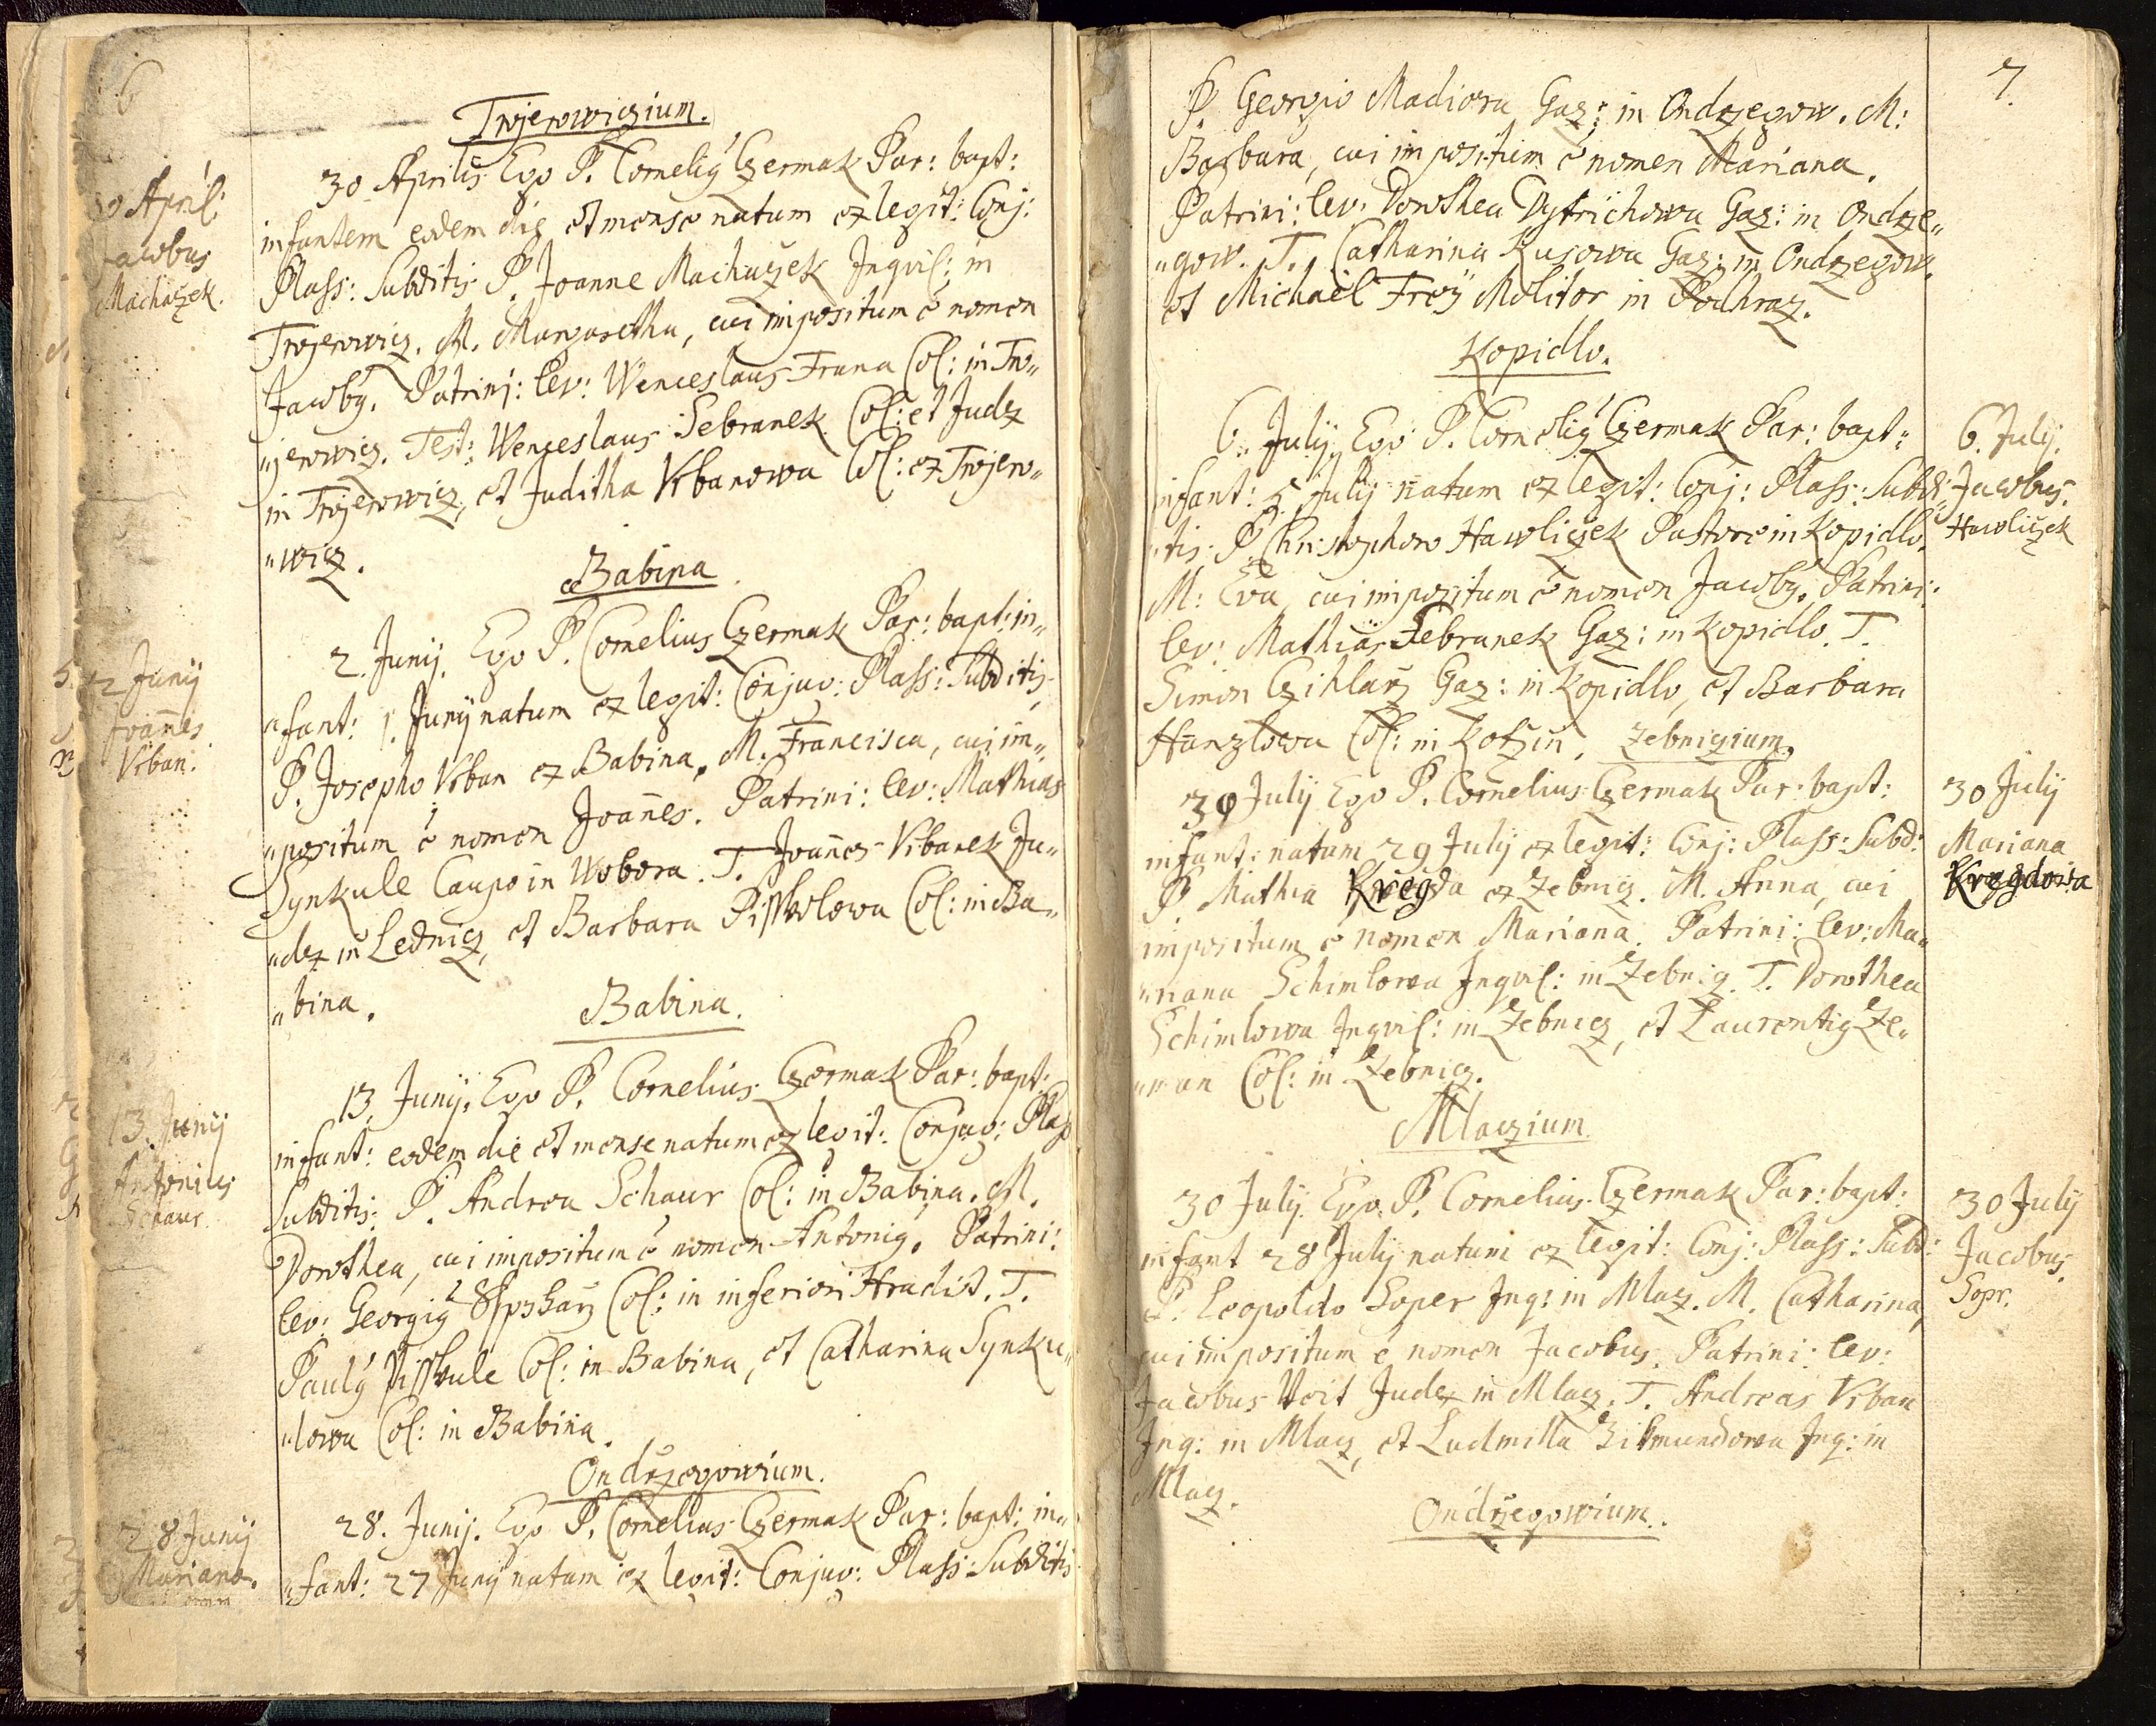 6
Trojerowiczium.
30 April:
Jacobus
Machaczek.
30 Aprilis Ego P. Cornelig Czermak Par: bapt:
infantem eodem die et mense natum ex legit: Conj:
Plass: Subditis P. Joanne Machaczek Inqvil: in
Trojerowicz. M. Margaretha, cui impositum e nomen
Jacobg. Patrini: lev: Wenceslaus Frana Col: in Tro„
„jerowicz. Test: Wenceslaus Sebranek Col: et Judex
in Trojerowicz, et Juditha Vrbanowa Col: ex Trojero„
„wicz.
Babina
2 Junij
Joannes
Vrban.
2. Junij. Ego P. Cornelius Czermak Par: bapt: in„
„fant: 1. Junij natum ex legit: Conjug: Plass: Subditis,
P. Josepho Vrban ex Babina, M. Francisca, cui im„
„positum e nomen Joannes. Patrini: lev: Mathias
Synkule Caupo in Wobora. T. Joannes Vrbanek Ju„
„dex in Lednicz, et Barbara Pisskulowa Col: in Ba„
„bina.
Babina.
13. Junij
Antonius
Schaur.
13. Junij. Ego P. Cornelius Czermak Par: bapt:
infant: eodem die et mense natum ex legit: Conjug: Plass
Subditis: P. Andrea Schaur Col: in Babina. M.
Dorothea, cui impositum e nomen Antonig. Patrini:
lev: Georgig Col: in inferiori Hradist. T.
Paulg Pisskule Col: in Babina, et Catharina Synku„
„lowa Col: in Babina.
Ondrzegowium.
28 Junij
Mariana.
28. Junij. Ego P. Cornelius Czermak Par: bapt: in„
„fant: 27 Junij natam ex legit: Conjug: Plass: Subditis
7.
P. Georgio Madiora Gaz: in Ondrzegow. M:
Barbara, cui impositum e nomen Mariana.
Patrini: lev: Dorothea Dytrichowa Gaz: in Ondrze„
„gow. T. Catharina Kusowa Gaz: in Ondrzegow.
et Michael Frey Molitor in Podhraz.
Kopidlo.
6. July Ego P. Cornelig Czermak Par: bapt:
infant: 5 July natum ex legit: Conj: Plass: Subdi„
„tis: P. Christophoro Hawliczek Pastore in Kopidlo.
M: Eva, cui impositum e nomen Jacobg. Patrini:
lev: Mathias Sebranek Gaz: in Kopidlo. T.
Simon Czihlarz Gaz: in Kopidlo, et Barbara
Hanzlowa Col: in Kotzin. Zebnizium.
6. July.
Jacobus.
Hawliczek
30 July Ego P. Cornelius Czermak Par: bapt:
infant: natam 29 July ex legit: Conj: Plass: Subd:
P Mathia Kregda ex Zebnicz. M. Anna, cui
impositum e nomen Mariana. Patrini: lev: Ma„
„riana Schimlowa Inqvil: in Zebnicz. T. Dorothea
Schimlowa Inqvil: in Zebnicz, et Laurentig Ze„
„man Col: in Zebnicz.
30 July
Mariana
Kregdowa
Mlaczium
30 July. Ego P. Cornelius Czermak Par: bapt:
infant 28 July natum ex legit: Conj: Plass: Subd:
P. Leopoldo Soper Inq: in Mlacz. M. Catharina,
cui impositum e nomen Jacobus. Patrini: lev:
Jacobus Voit Judex in Mlacz. T. Andreas Vrban
Inq: in Mlacz, et Ludmilla Zikmundowa Inq: in
Mlacz.
30 July
Jacobus.
Sopr.
Ondrzegowium.